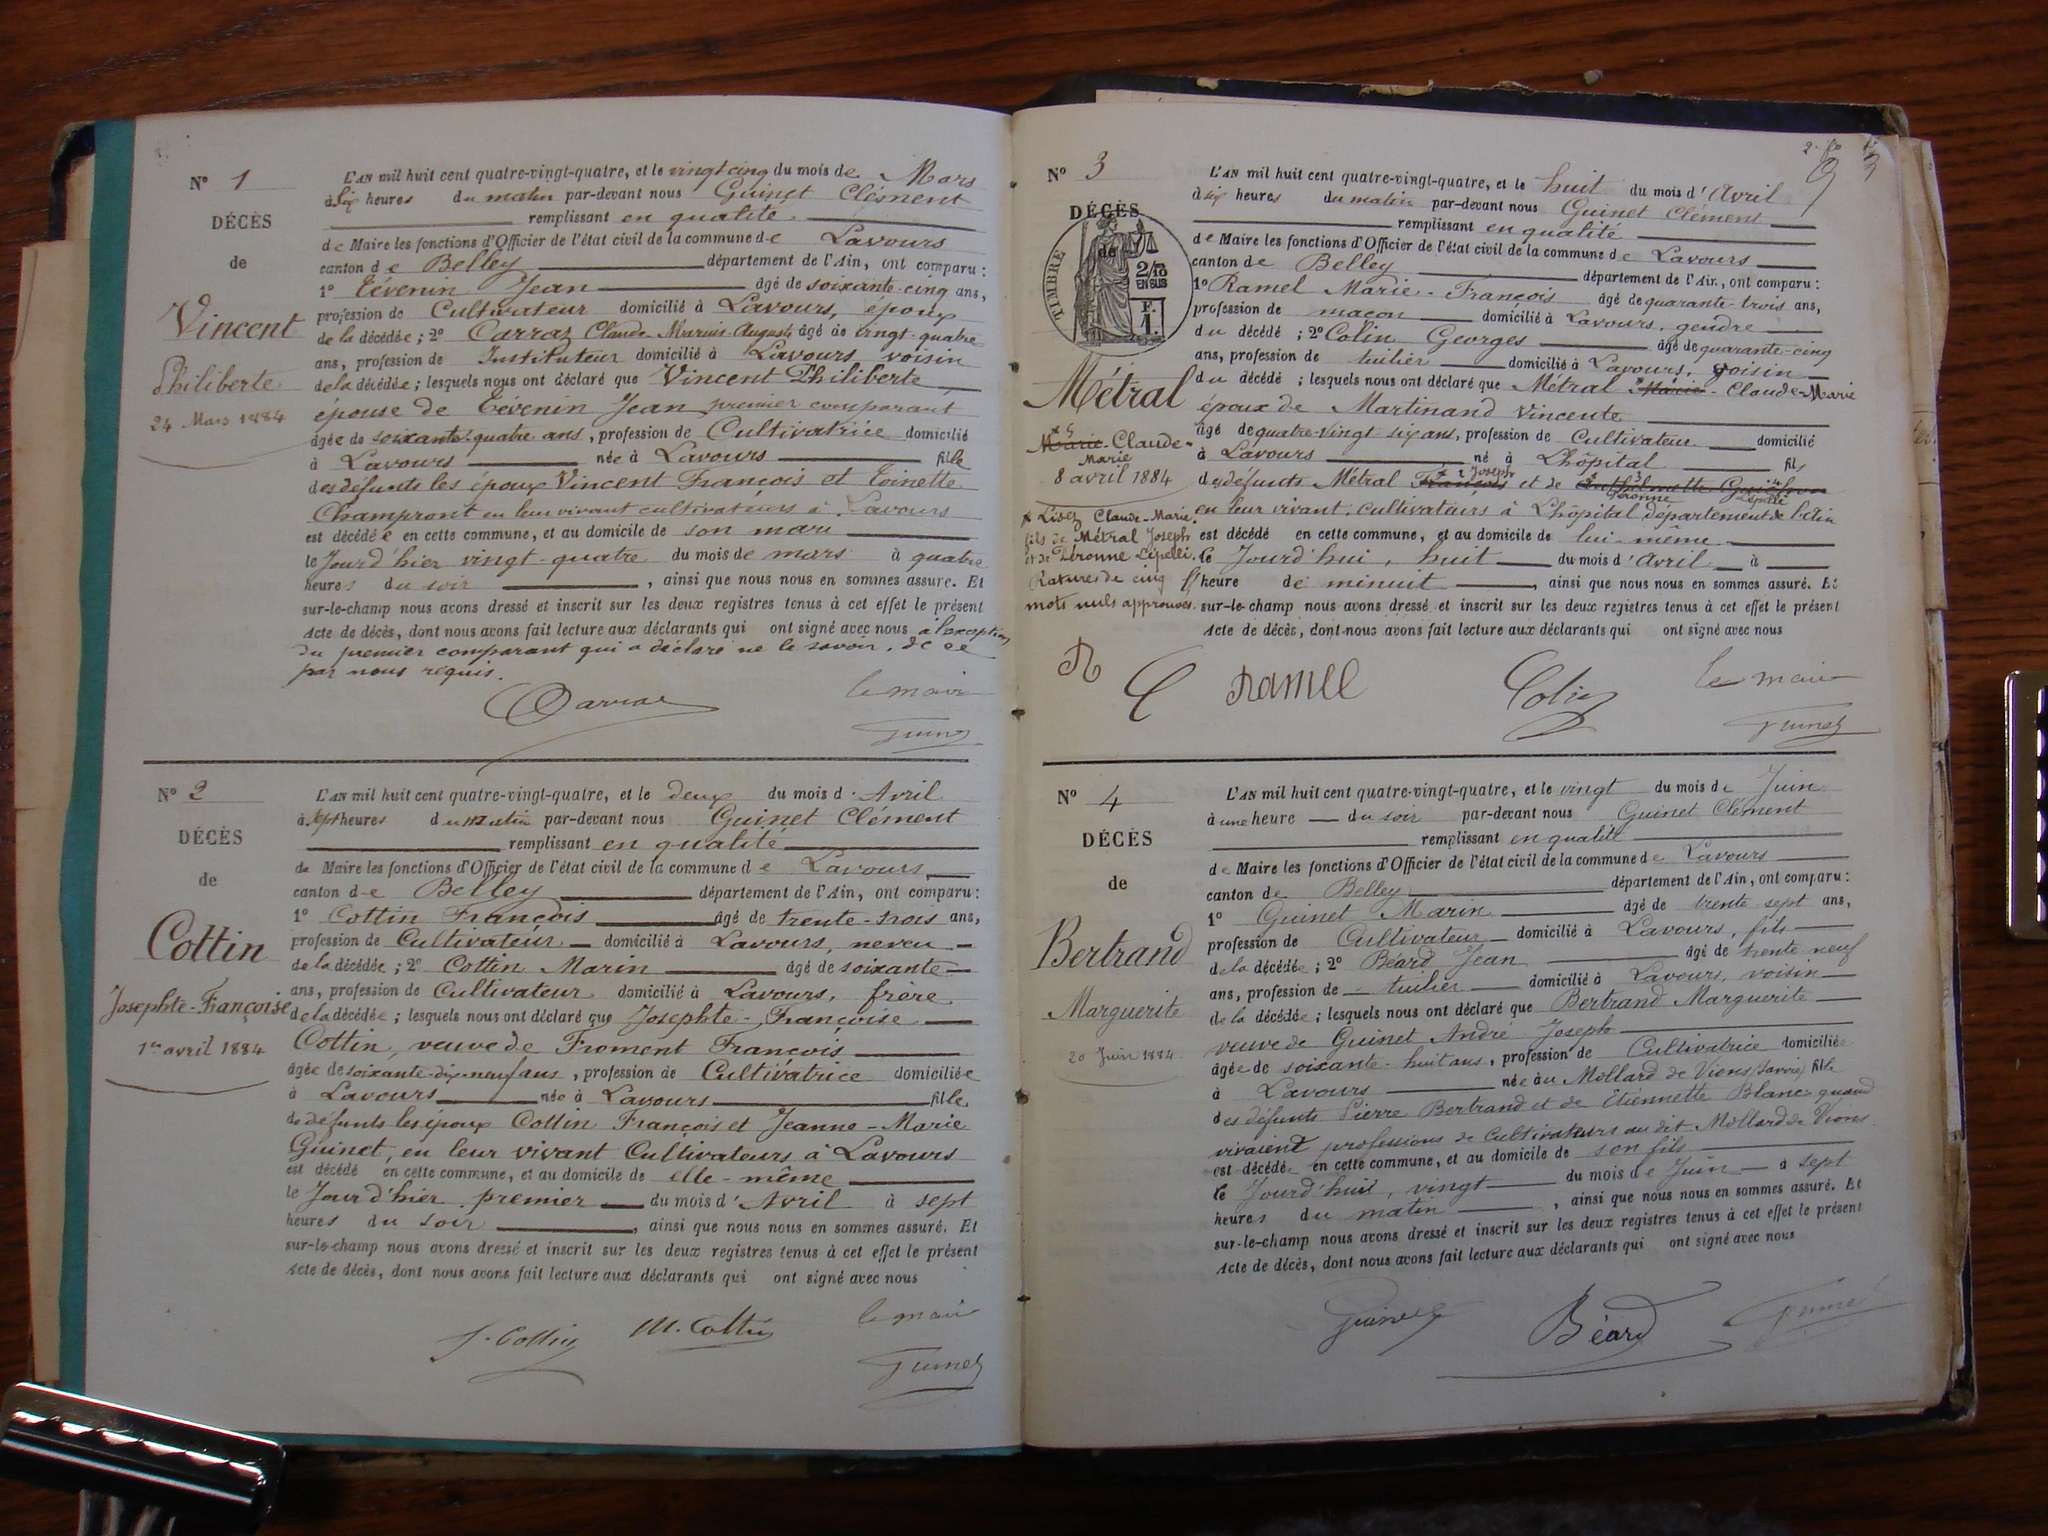 N° 1
DÉCÈS
de
Vincent
Philiberte
24 Mars 1884
L'AN mil huit cent quatre-vingt-quatre, et le vingt cinq du mois de Mars
à six heures du matin par-devant nous Guinet Clément
remplissant en qualité
de Maire les fonctions d'Officier de l'état civil de la commune de Lavours
canton de Belley département de l'Ain, ont comparu :
1° Tévenin Jean âgé de soixante-cinq ans,
profession de Cultivateur domicilié à Lavours, époux
de la décédée ; 2° Carraz Claude-Marius-Auguste âgé de vingt-quatre
ans, profession de Instituteur domicilié à Lavours, voisin
de la décédée ; lesquels nous ont déclaré que Vincent Philiberte
épouse de Tévenin Jean premier comparant
âgée de soixante-quatre ans, profession de Cultivatrice domicilié
à Lavours née à Lavours fille
des défunts les époux Vincent François et Toinette
Champront en leur vivant cultivateurs à Lavours
est décédée en cette commune, et au domicile de son mari
le Jourd'hier vingt-quatre du mois de mars à quatre
heures du soir, ainsi que nous nous en sommes assuré. Et
sur-le-champ nous avons dressé et inscrit sur les deux registres tenus à cet effet le présent
Acte de décès, dont nous avons fait lecture aux déclarants qui ont signé avec nous à l'exception
du premier comparant qui a déclaré ne le savoir, de ce
par nous requis.
Carraz
le maire
Guinet
N° 2
DÉCÈS
de
Cottin
Josephte-Françoise
1er avril 1884
L'AN mil huit cent quatre-vingt-quatre, et le deux du mois d'Avril
à sept heures du matin par-devant nous Guinet Clément
remplissant en qualité
de Maire les fonctions d'Officier de l'état civil de la commune de Lavours
canton de Belley département de l'Ain, ont comparu :
1° Cottin François âgé de trente-trois ans,
profession de Cultivateur domicilié à Lavours, neveu
de la décédée ; 2° Cottin Marin âgé de soixante
ans, profession de Cultivateur domicilié à Lavours, frère
de la décédée ; lesquels nous ont déclaré que Josephte-Françoise
Cottin, veuve de Froment François
âgée de soixante-dix-neuf ans, profession de Cultivatrice domiciliée
à Lavours née à Lavours fille
de défunts les époux Cottin François et Jeanne-Marie
Guinet, en leur vivant Cultivateurs à Lavours
est décédé en cette commune, et au domicile de elle-même
le Jourd'hier premier du mois d'Avril à sept
heures du soir, ainsi que nous nous en sommes assuré. Et
sur-le-champ nous avons dressé et inscrit sur les deux registres tenus à cet effet le présent
Acte de décès, dont nous avons fait lecture aux déclarants qui ont signé avec nous
f. Cottin
M. Cottin
le maire
Guinet
3
N° 3
DÉCÈS
de
TIMBRE
2/10
EN SUS
F.
1.
Métral
Marie-Claude-
Marie
8 avril 1884
x Lisez Claude-Marie
fils de Métral Joseph
et de Péronne Lépelli.
Ratures de cinq
mots nuls approuvés.
L'AN mil huit cent quatre-vingt-quatre, et le huit du mois d'Avril
à six heures du matin par-devant nous Guinet Clément
remplissant en qualité
de Maire les fonctions d'Officier de l'état civil de la commune de Lavours
canton de Belley département de l'Ain, ont comparu :
1° Ramel Marie-François âgé de quarante-trois ans,
profession de maçon domicilié à Lavours, gendre
du décédé ; 2° Colin Georges âgé de quarante-cinq
ans, profession de tuilier domicilié à Lavours, voisin
du décédé ; lesquels nous ont déclaré que Métral Marie-Claude-Marie
époux de Martinand Vincente
âgé de quatre-vingt six ans, profession de Cultivateur domicilié
à Lavours né à Lhôpital fils
des défunts Métral François Joseph et de Péronne Lépelli
en leur vivant cultivateurs à Lhôpital département de l'Ain
est décédé en cette commune, et au domicile de lui-même
le Jourd'hui, huit du mois d'Avril à
heure de minuit, ainsi que nous nous en sommes assuré. Et
sur-le-champ nous avons dressé et inscrit sur les deux registres tenus à cet effet le présent
Acte de décès, dont nous avons fait lecture aux déclarants qui ont signé avec nous
R C Ramel
Colin
le maire
Guinet
N° 4
DÉCÈS
de
Bertrand
Marguerite
20 Juin 1884
L'AN mil huit cent quatre-vingt-quatre, et le vingt du mois de Juin
à une heure du soir par-devant nous Guinet Clément
remplissant en qualité
de Maire les fonctions d'Officier de l'état civil de la commune de Lavours
canton de Belley département de l'Ain, ont comparu :
1° Guinet Marin âgé de trente sept ans,
profession de Cultivateur domicilié à Lavours, fils
de la décédée ; 2° Béard Jean âgé de trente neuf
ans, profession de tuilier domicilié à Lavours, voisin
de la décédée ; lesquels nous ont déclaré que Bertrand Marguerite
veuve de Guinet André Joseph
âgée de soixante-huit ans, profession de Cultivatrice domiciliée
à Lavours née au Mollard de Vions (Savoie) fille
des défunts Pierre Bertrand et de Etiennette Blanc quand
vivaient professions de Cultivateurs au dit Mollard de Vions
est décédée en cette commune, et au domicile de son fils
le Jourd'hui, vingt du mois de Juin à sept
heures du matin, ainsi que nous nous en sommes assuré. Et
sur-le-champ nous avons dressé et inscrit sur les deux registres tenus à cet effet le présent
Acte de décès, dont nous avons fait lecture aux déclarants qui ont signé avec nous
Guinet
Béard
Guinet